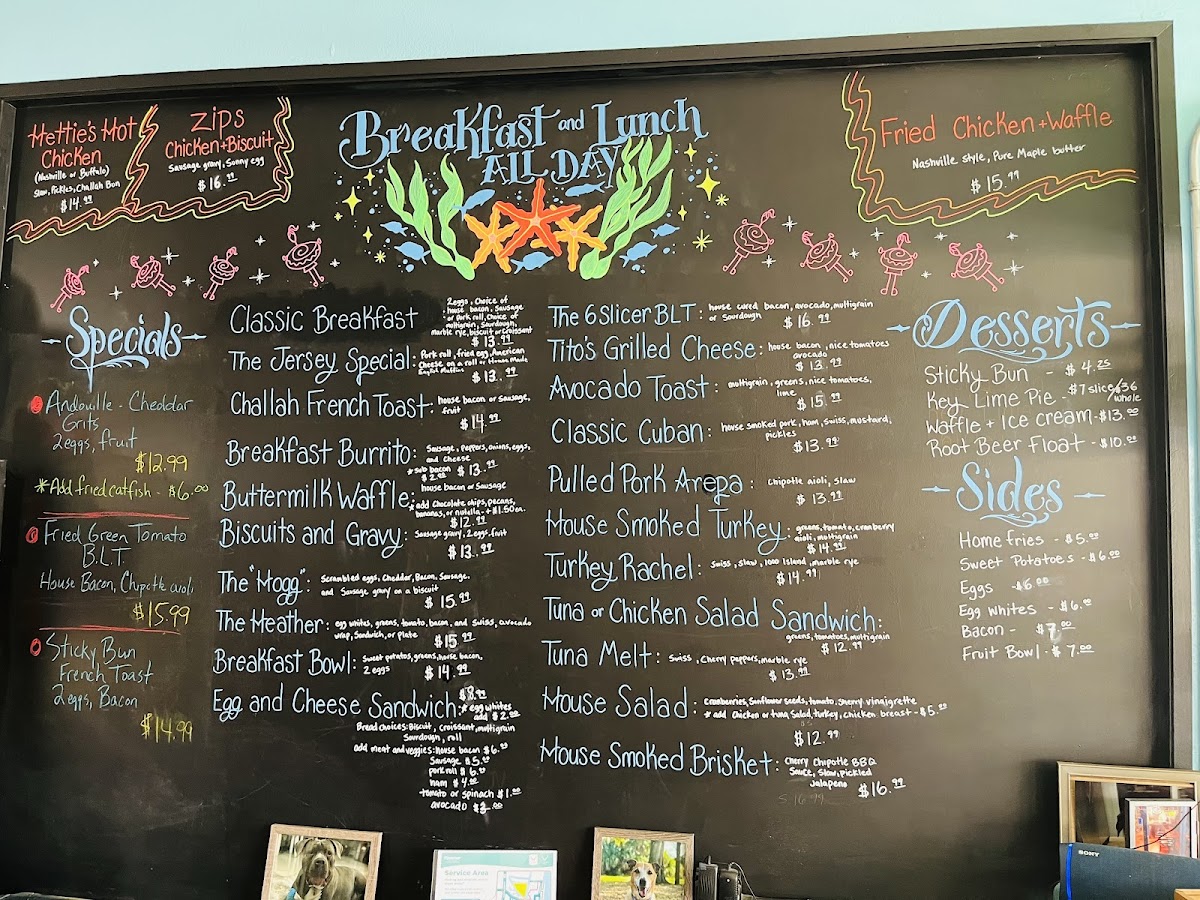 Hettie's Hot
Chicken
(Nashville or Buffalo)
Slaw, Pickles, Challah Bun
$14.99
Zips
Chicken + Biscuit
Sausage gravy, Sunny egg
$16.99
Breakfast and Lunch
ALL DAY
Fried Chicken + Waffle
Nashville style, Pure Maple butter
$15.99
Specials
Andouille - Cheddar
Grits
2 eggs, fruit
$12.99
*Add fried catfish - $6.00
Fried Green Tomato
B.L.T.
House Bacon, Chipotle aioli
$15.99
Sticky Bun
French Toast
2 eggs, Bacon
$14.99
Classic Breakfast
2 eggs, Choice of
house bacon, Sausage
or Pork roll, Choice of
multigrain, Sourdough,
marble rye, biscuit or Croissant
$13.99
The Jersey Special:
Pork roll, fried egg, American
Cheese on a roll or House Made
English Muffin
$13.99
Challah French Toast:
house bacon or Sausage,
fruit
$14.99
Breakfast Burrito:
Sausage, Peppers, onions, eggs,
and Cheese
*Sub bacon
$2.00
$13.99
Buttermilk Waffle:
house bacon or Sausage
*add Chocolate chips, pecans,
bananas, or nutella - + $1.50 ea.
$12.99
Biscuits and Gravy:
Sausage gravy, 2 eggs, fruit
$13.99
The "Hogg":
Scrambled eggs, Cheddar, Bacon, Sausage,
and Sausage gravy on a biscuit
$15.99
The Heather:
egg whites, greens, tomato, bacon, and Swiss, avocado
wrap, Sandwich, or Plate
$15.99
Breakfast Bowl:
Sweet potatos, greens, house bacon,
2 eggs
$14.99
Egg and Cheese Sandwich:
$8.99
*egg whites
add $2.00
Bread choices: Biscuit, croissant, multigrain
Sourdough, roll
add meat and veggies: house bacon $6.00
Sausage $5.00
pork roll $6.00
ham $4.00
tomato or spinach $1.00
avocado $3.00
The 6 Slicer BLT:
house cured bacon, avocado, multigrain
or Sourdough
$16.99
Tito's Grilled Cheese:
house bacon, nice tomatoes
avocado
$13.99
Avocado Toast:
multigrain, greens, nice tomatoes,
lime
$15.99
Classic Cuban:
house smoked pork, ham, Swiss, mustard,
pickles
$13.99
Pulled Pork Arepa:
Chipotle aioli, slaw
$13.99
House Smoked Turkey:
greens, tomato, cranberry
aioli, multigrain
$14.99
Turkey Rachel:
Swiss, Slaw, 1000 Island, marble rye
$14.99
Tuna or Chicken Salad Sandwich:
greens, tomatoes, multigrain
$12.99
Tuna Melt:
Swiss, Cherry peppers, marble rye
$13.99
House Salad:
Cranberries, Sunflower seeds, tomato, Sherry vinaigrette
*add Chicken or tuna Salad, turkey, chicken breast - $5.00
$12.99
House Smoked Brisket:
Cherry Chipotle BBQ
Sauce, Slaw, pickled
Jalapeno
$16.99
Desserts
Sticky Bun - $4.25
Key Lime Pie - $7 slice $36
whole
Waffle + Ice Cream - $13.00
Root Beer Float - $10.00
Sides
Home fries - $5.00
Sweet Potatoes - $6.00
Eggs - $6.00
Egg Whites - $6.00
Bacon - $7.00
Fruit Bowl - $7.00
Service Area
SONY